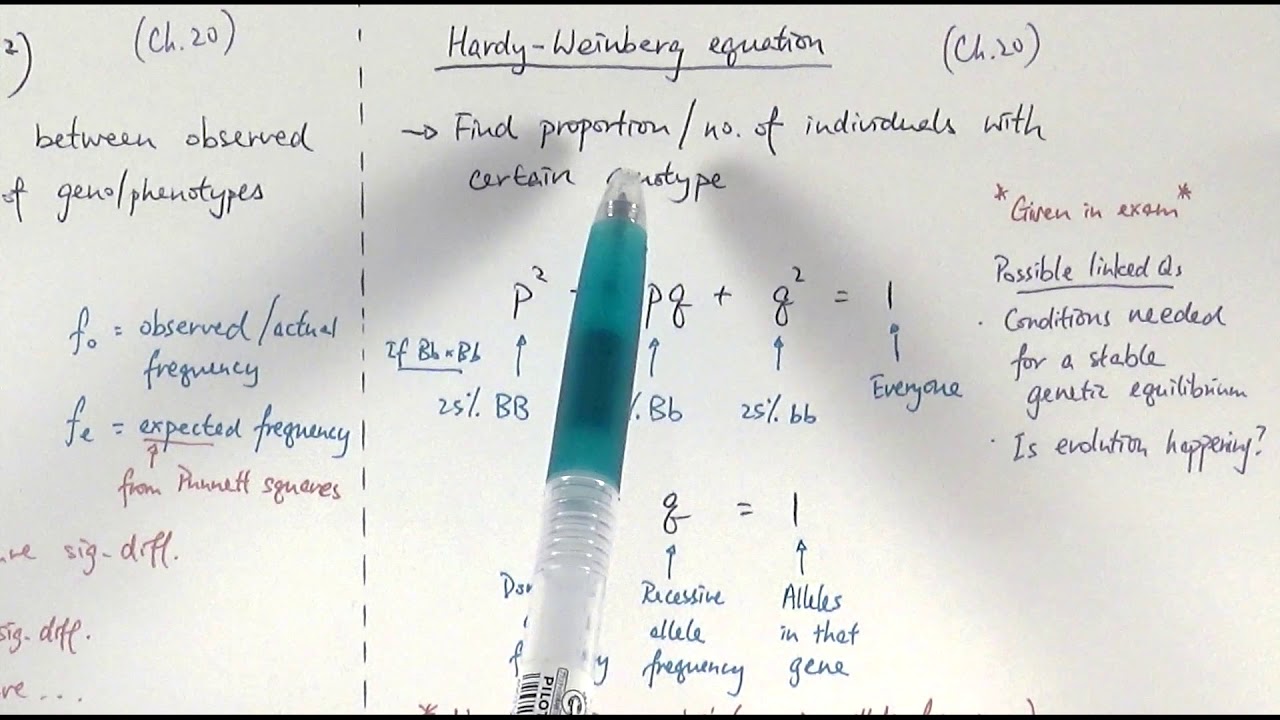 2)
(Ch.20)
between observed
of geno/phenotypes
fo = observed/actual
frequency
fe = expected frequency
from Punnett squares
sig. diff.
sig. diff.
Hardy-Weinberg equation
(Ch.20)
→ Find proportion/no. of individuals with
certain
p² pq + q² = 1
If Bb × Bb
25% BB % Bb 25% bb Everyone
q = 1
Recessive
allele
frequency
Alleles
in that
gene
*Given in exam*
Possible linked Qs
· Conditions needed
for a stable
genetic equilibrium
· Is evolution happening?
PILOT